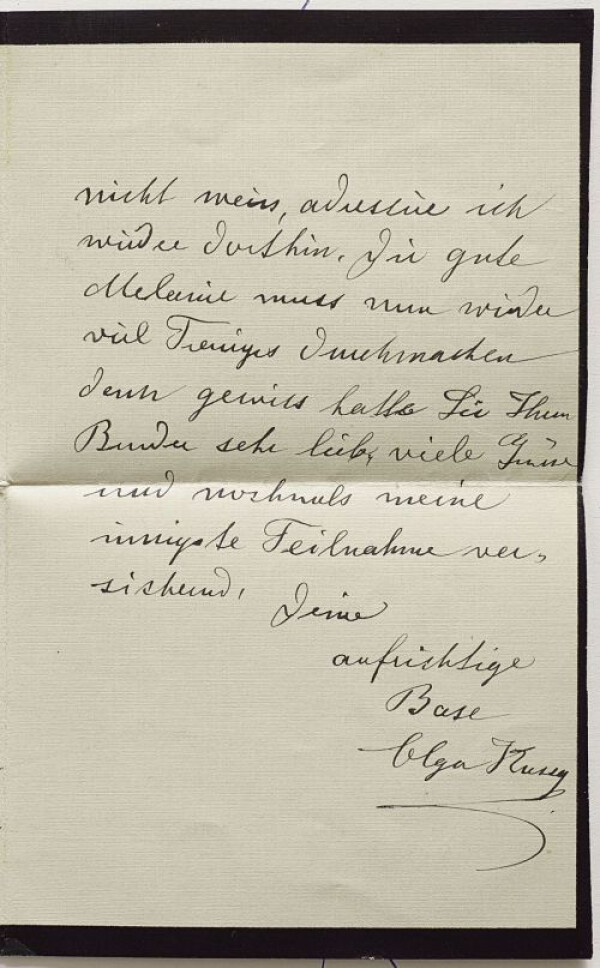 nicht weiss, adressiere ich
wieder dorthin. Die gute
Melanie muss nun wieder
viel Trauriges durchmachen
denn gewiss hatte Sie Ihren
Bruder sehr lieb, viele Grüsse
und nochmals meine
innigste Teilnahme ver-
sichernd,
Deine
aufrichtige
Base
Olga